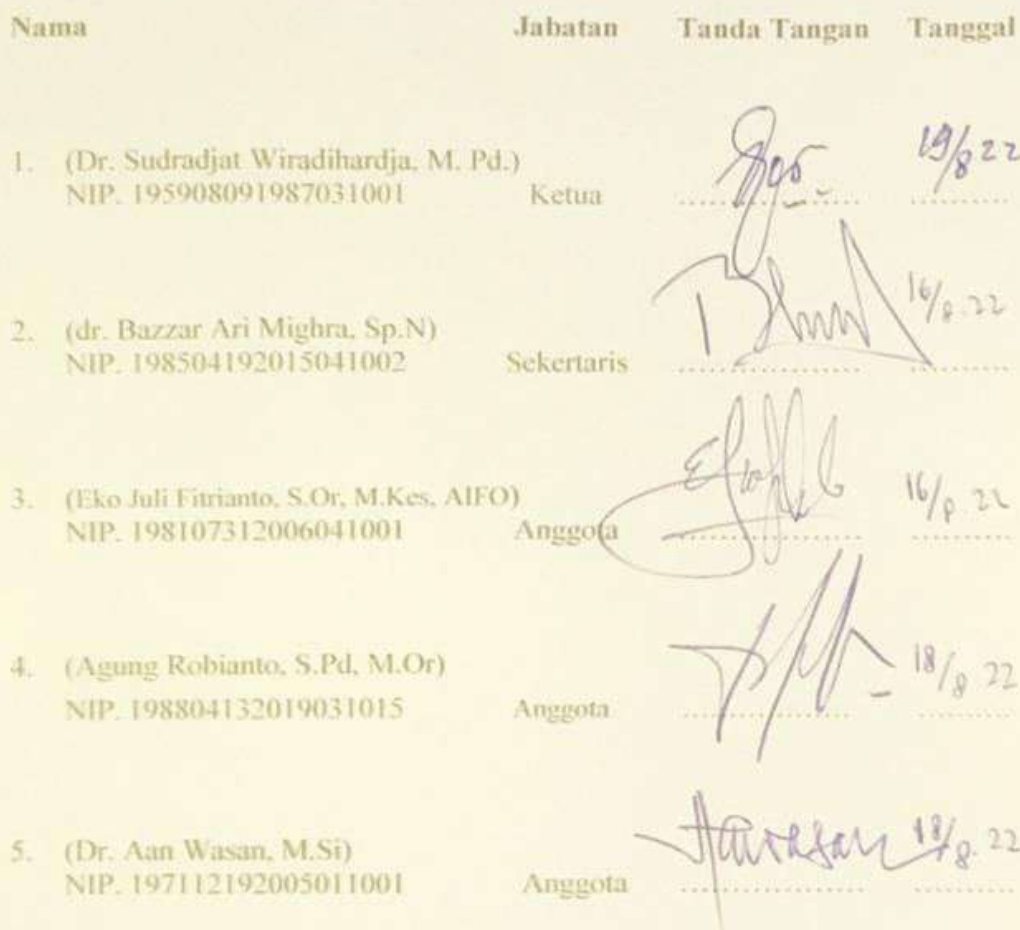 Nama Jabatan Tanda Tangan Tanggal
1. (Dr. Sudradjat Wiradihardja, M. Pd.)
NIP. 195908091987031001 Ketua ............... 19/8 22
2. (dr. Bazzar Ari Mighra, Sp.N)
NIP. 198504192015041002 Sekertaris ............... 16/8.22
3. (Eko Juli Fitrianto, S.Or, M.Kes, AIFO)
NIP. 198107312006041001 Anggota ............... 16/8 22
4. (Agung Robianto, S.Pd, M.Or)
NIP. 198804132019031015 Anggota ............... 18/8 22
5. (Dr. Aan Wasan, M.Si)
NIP. 197112192005011001 Anggota ............... 18/8.22